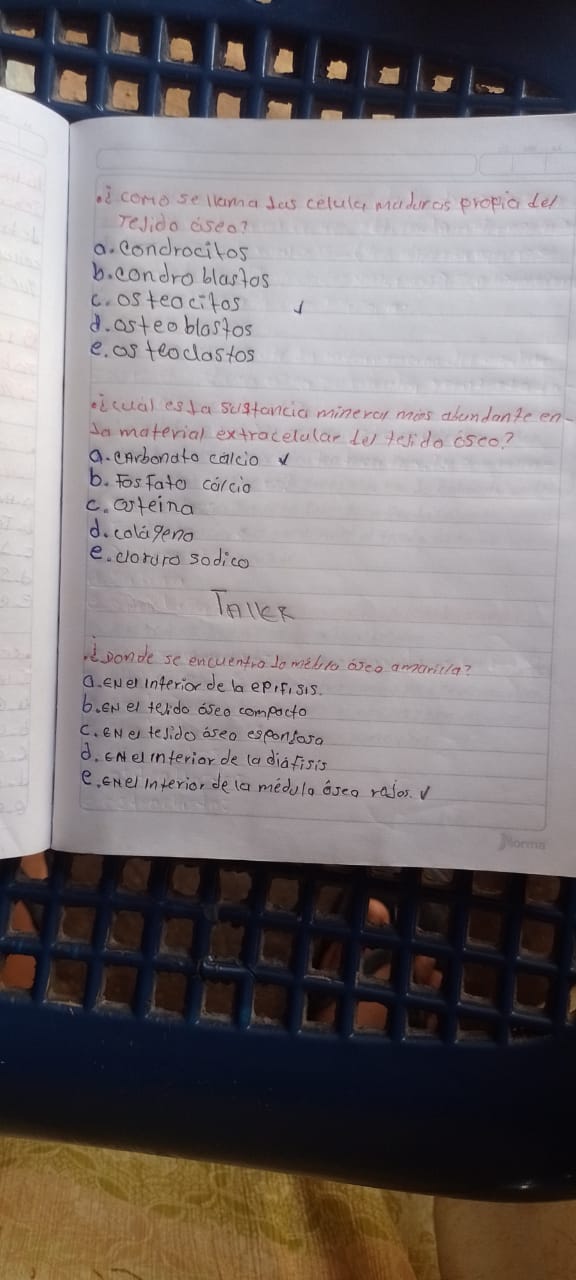 .¿ como se llama las celula maduras propia del
Tejido óseo?
a. condrocitos
b. condro blastos
c. osteocitos ✓
d. osteo blastos
e. os teoclastos
.¿cuál es la sustancia mineral más abundante en
la material extracelular del tejido óseo?
a. cArbonato calcio ✓
b. Fosfato cálcio
c. osteina
d. colágeno
e. cloruro sodico
TAllER
.¿ Donde se encuentra la médula óseo amarilla?
a. EN el interior de la epifisis.
b. EN el tejido óseo compacto
c. EN el tejido óseo esponjoso
d. EN el interior de la diáfisis
e. EN el interior de la médula ósea rojos. ✓
Norma